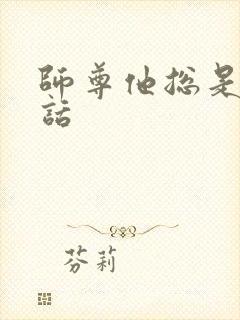 師尊他總是
話
芬莉